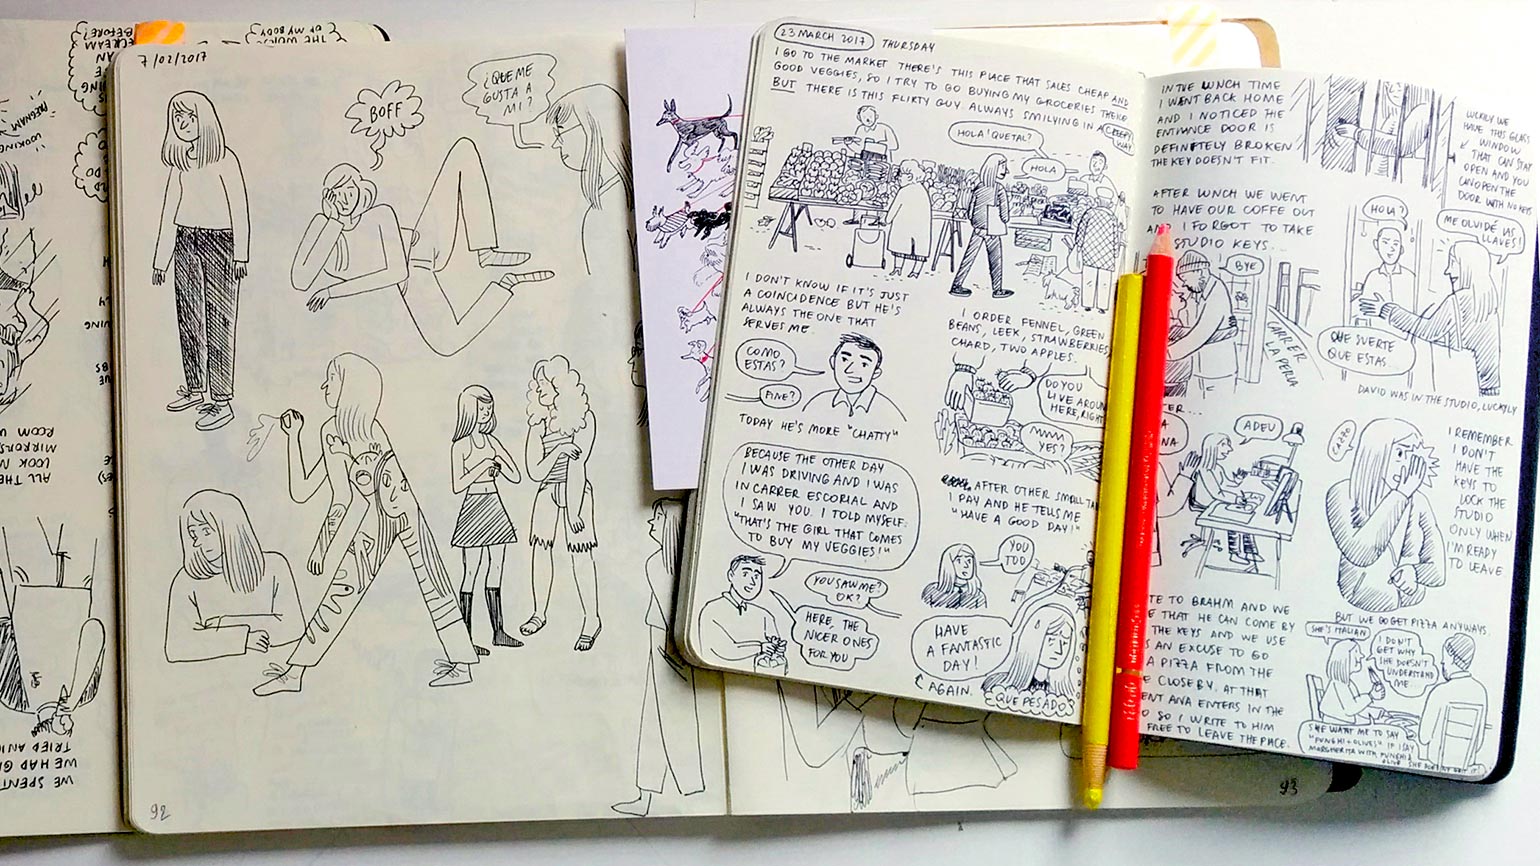 7/02/2017
BOFF
¿QUE ME
GUSTA A
MI?
92
23 MARCH 2017 THURSDAY
I GO TO THE MARKET THERE'S THIS PLACE THAT SALES CHEAP AND
GOOD VEGGIES, SO I TRY TO GO BUYING MY GROCERIES THERE
BUT THERE IS THIS FLIRTY GUY ALWAYS SMILYING IN A CREEPY
WAY
HOLA! QUETAL?
HOLA
I DON'T KNOW IF IT'S JUST
A COINCIDENCE BUT HE'S
ALWAYS THE ONE THAT
SERVES ME
COMO
ESTAS?
FINE?
TODAY HE'S MORE "CHATTY"
I ORDER FENNEL, GREEN
BEANS, LEEK, STRAWBERRIES,
CHARD, TWO APPLES.
DO YOU
LIVE AROUN
HERE, RIGHT
MMMM
YES?
BECAUSE THE OTHER DAY
I WAS DRIVING AND I WAS
IN CARRER ESCORIAL AND
I SAW YOU. I TOLD MYSELF:
"THAT'S THE GIRL THAT COMES
TO BUY MY VEGGIES!"
AFTER OTHER SMALL TA
I PAY AND HE TELLS ME
"HAVE A GOOD DAY!"
YOU SAW ME?
OK?
HERE, THE
NICER ONES
FOR YOU
YOU
TOO
HAVE
A FANTASTIC
DAY!
AGAIN.
QUE PESADO
IN THE LUNCH TIME
I WENT BACK HOME
AND I NOTICED THE
ENTRANCE DOOR IS
DEFINITELY BROKEN
THE KEY DOESN'T FIT.
LUCKILY WE
HAVE THIS GLASS
WINDOW
THAT CAN STAY
OPEN AND YOU
CAN OPEN THE
DOOR WITH NO KEYS
AFTER LUNCH WE WENT
TO HAVE OUR COFFE OUT
AND I FORGOT TO TAKE
STUDIO KEYS...
BYE
CARRER
LA PERLA
HOLA?
ME OLVIDÉ LAS
LLAVES!
QUE SUERTE
QUE ESTAS
DAVID WAS IN THE STUDIO, LUCKYLY
ADEU
CAZZO
I REMEMBER
I DON'T
HAVE THE
KEYS TO
LOCK THE
STUDIO
ONLY WHEN
I'M READY
TO LEAVE
TE TO BRAHM AND WE
E THAT HE CAN COME BY
THE KEYS AND WE USE
S AN EXCUSE TO GO
A PIZZA FROM THE
E CLOSE BY. AT THAT
ENT ANA ENTERS IN THE
O SO I WRITE TO HIM
FREE TO LEAVE THE PLACE.
BUT WE GO GET PIZZA ANYWAYS.
SHE'S ITALIAN
I DON'T
GET WHY
SHE DOESN'T
UNDERSTAND
ME
SHE WANT ME TO SAY
"FUNGHI + OLIVES" IF I SAY
MARGHERITA WITH FUNGHI
93